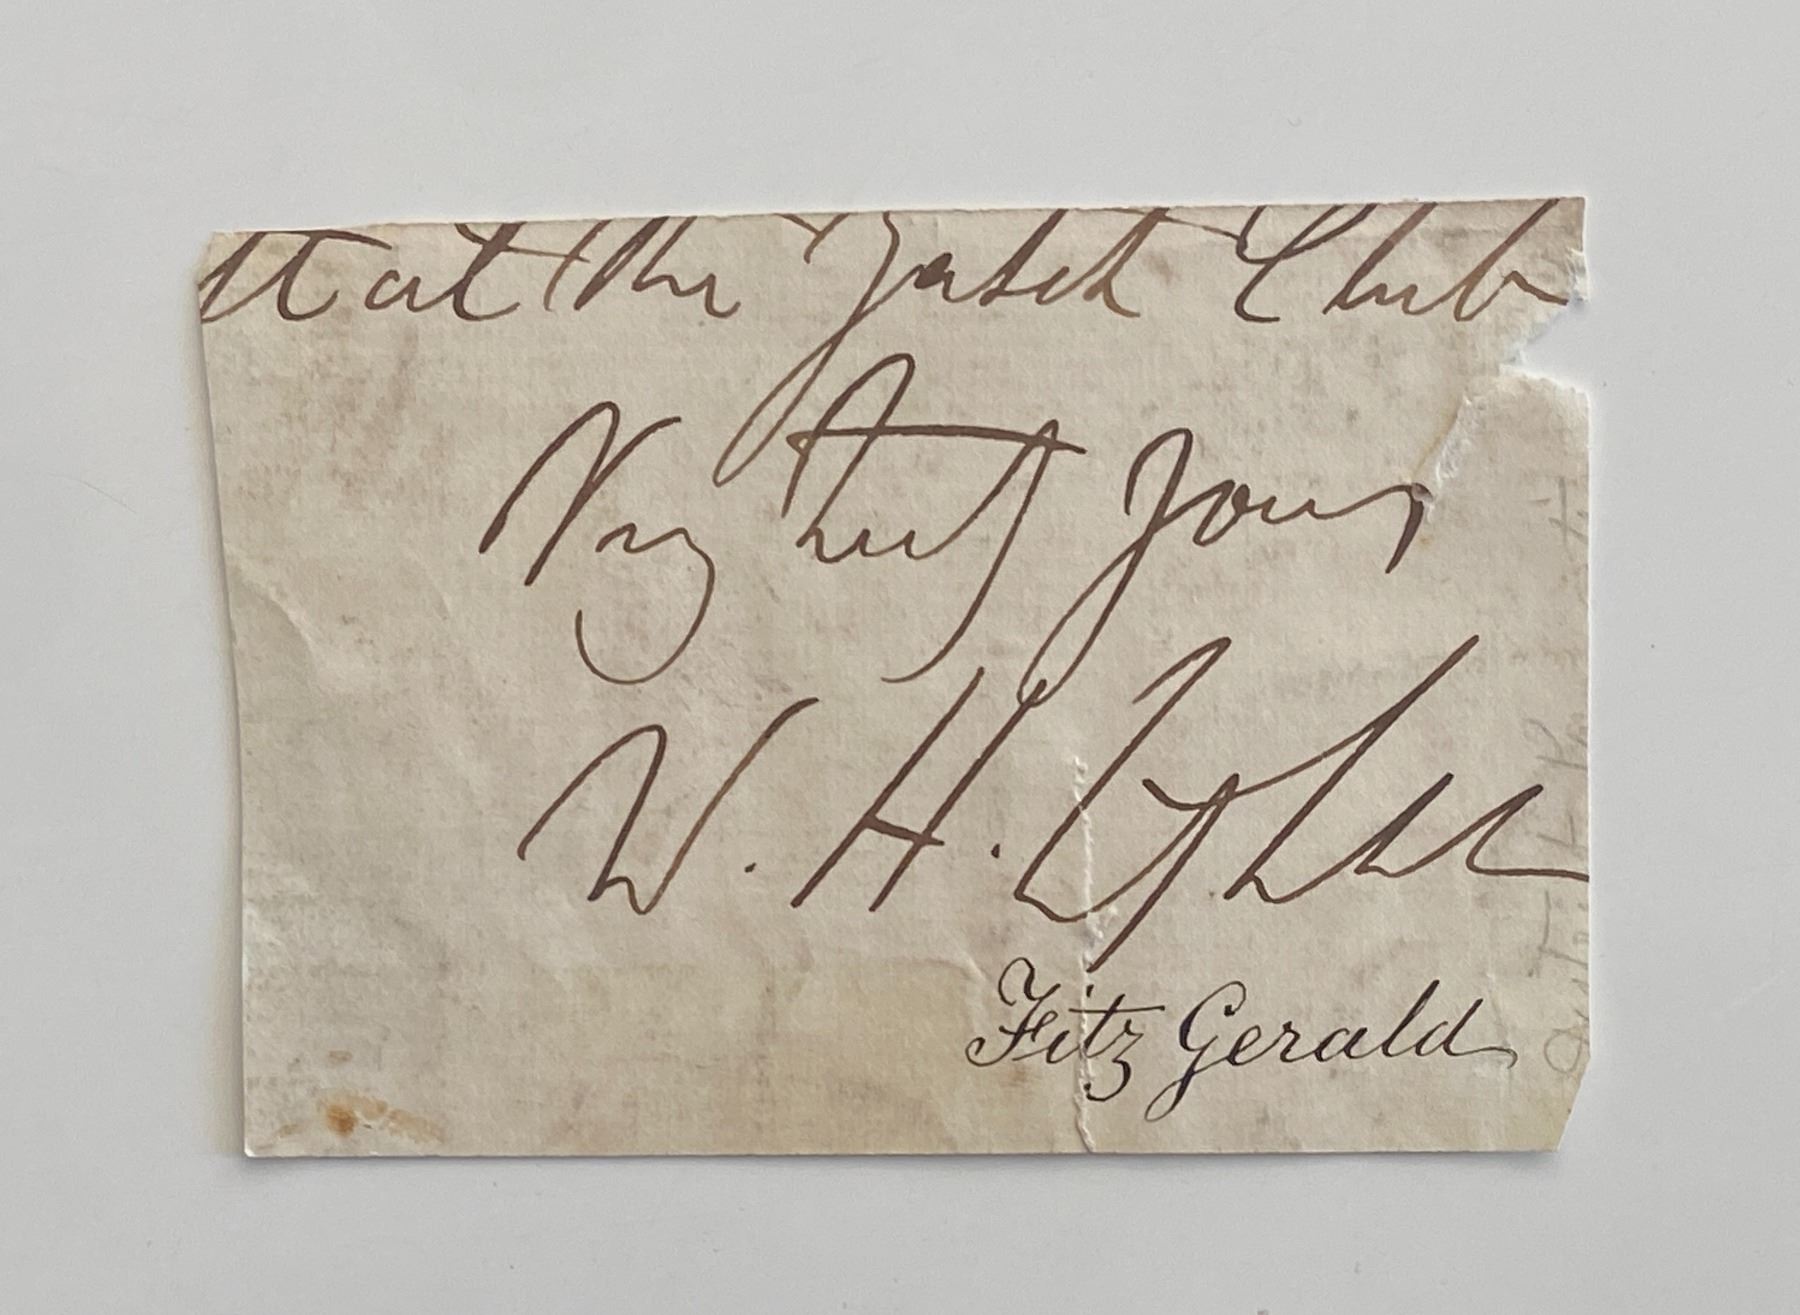 it at the Yacht Club
Very truly yours
W. H.
Fitz Gerald